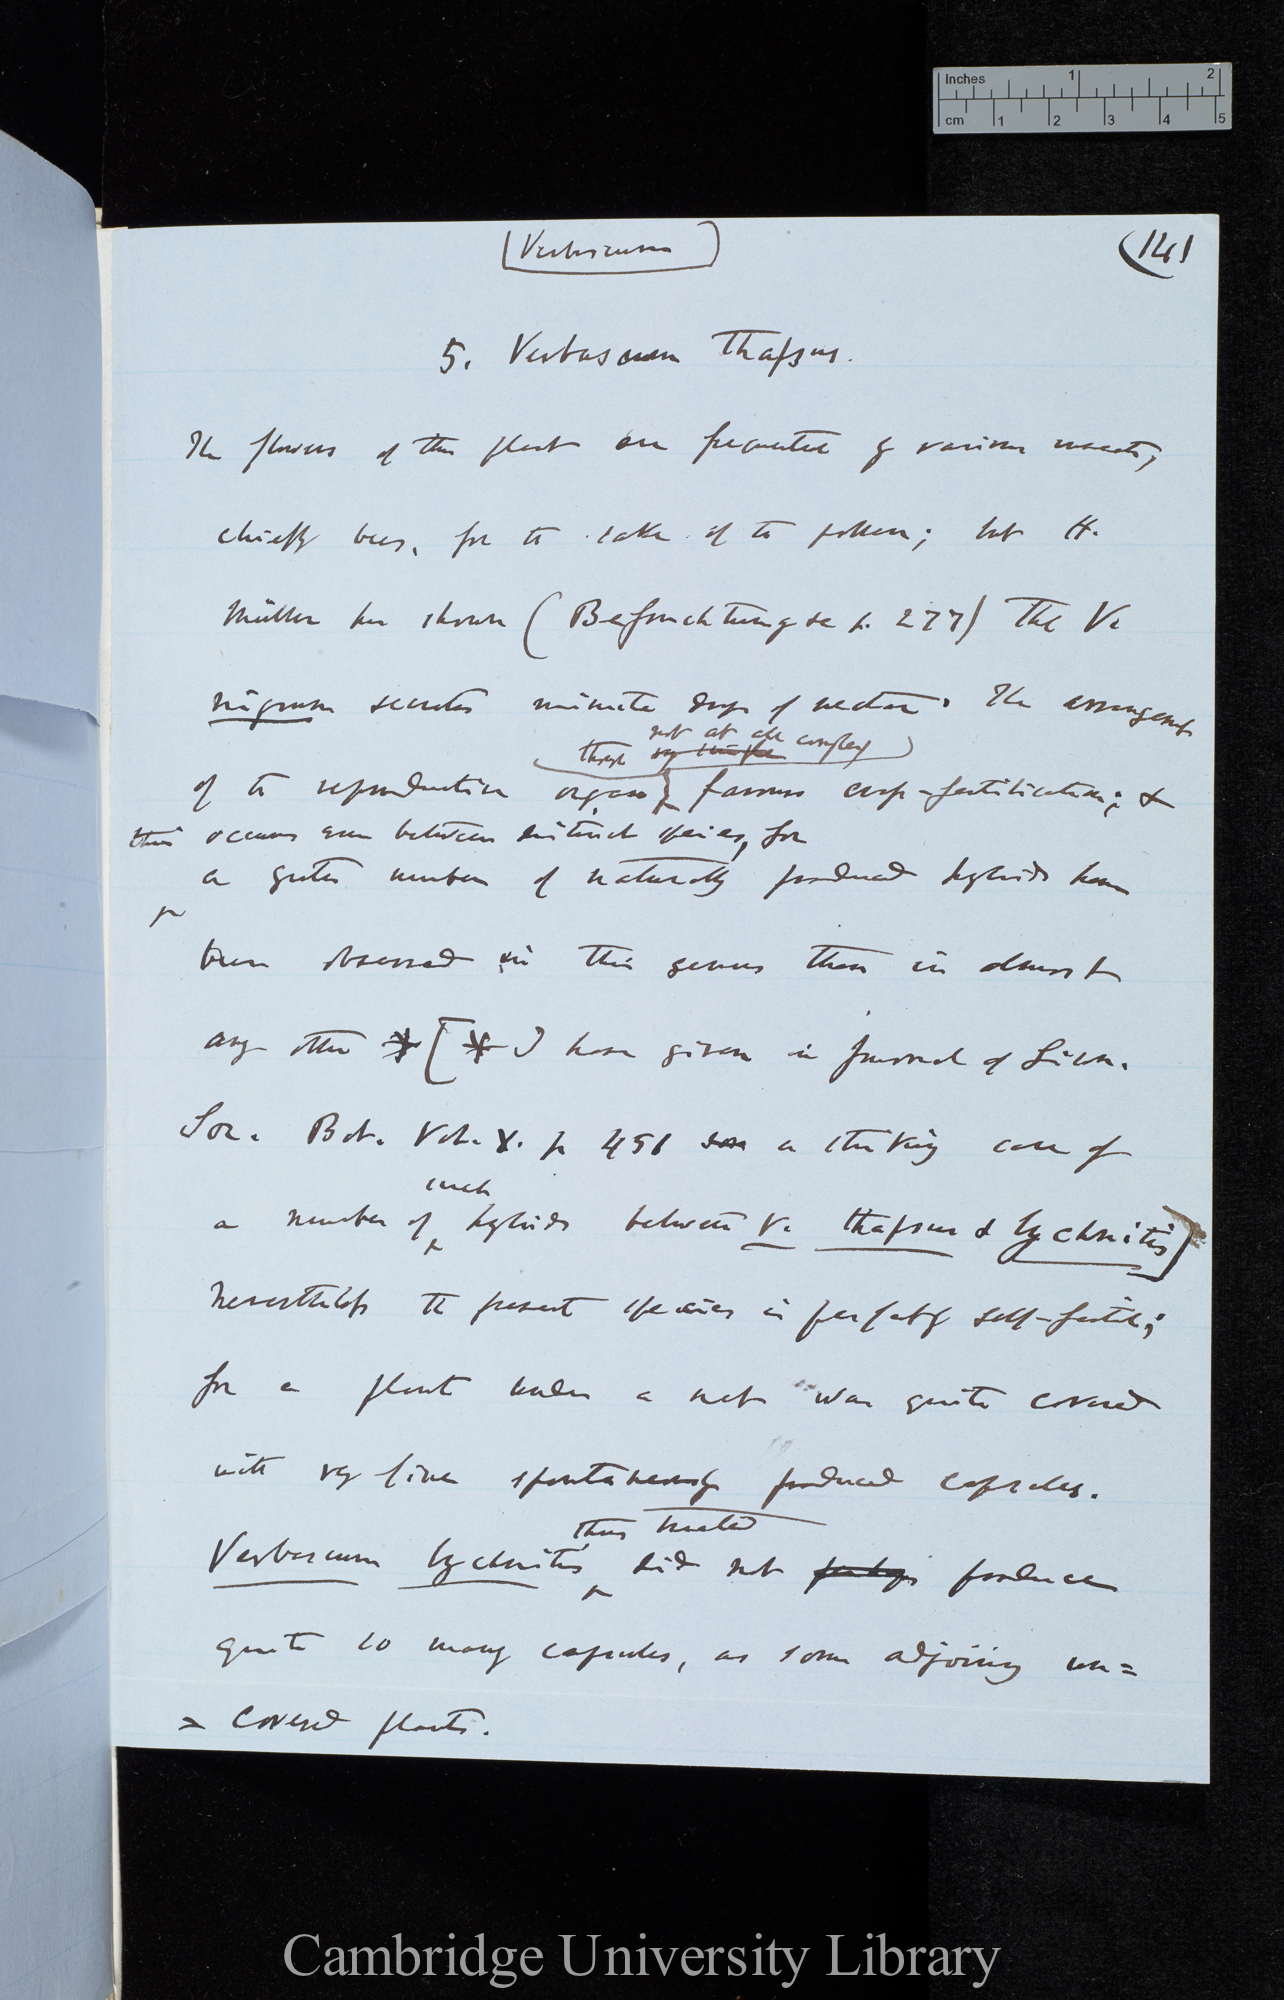 Inches 1 2
cm 1 2 3 4 5
[Verbascum]
(141
5. Verbascum thapsus.
The flowers of this plant are frequented by various insects,
chiefly bees, for the sake of the pollen; but H.
Müller has shown (Befruchtung &c p. 277) that V.
nigrum secretes minute drops of nectar. The arrangement
not at all
though very simple complex
of the reproductive organs, favours cross-fertilisation; &
this occurs even between distinct species, for
a greater number of naturally produced hybrids have
been observed in this genus than in almost
any other * [* I have given in Journal of Linn.
Soc. Bot. Vol. X. p 451 a striking case of
such
a number of hybrids between V. thapsus & lychnitis]
Nevertheless the present species is perfectly self-fertile;
for a plant under a net was quite covered
with very fine spontaneously produced capsules.
thus treated
Verbascum lychnitis, did not produce
quite so many capsules, as some adjoining un=
= covered plants.
Cambridge University Library